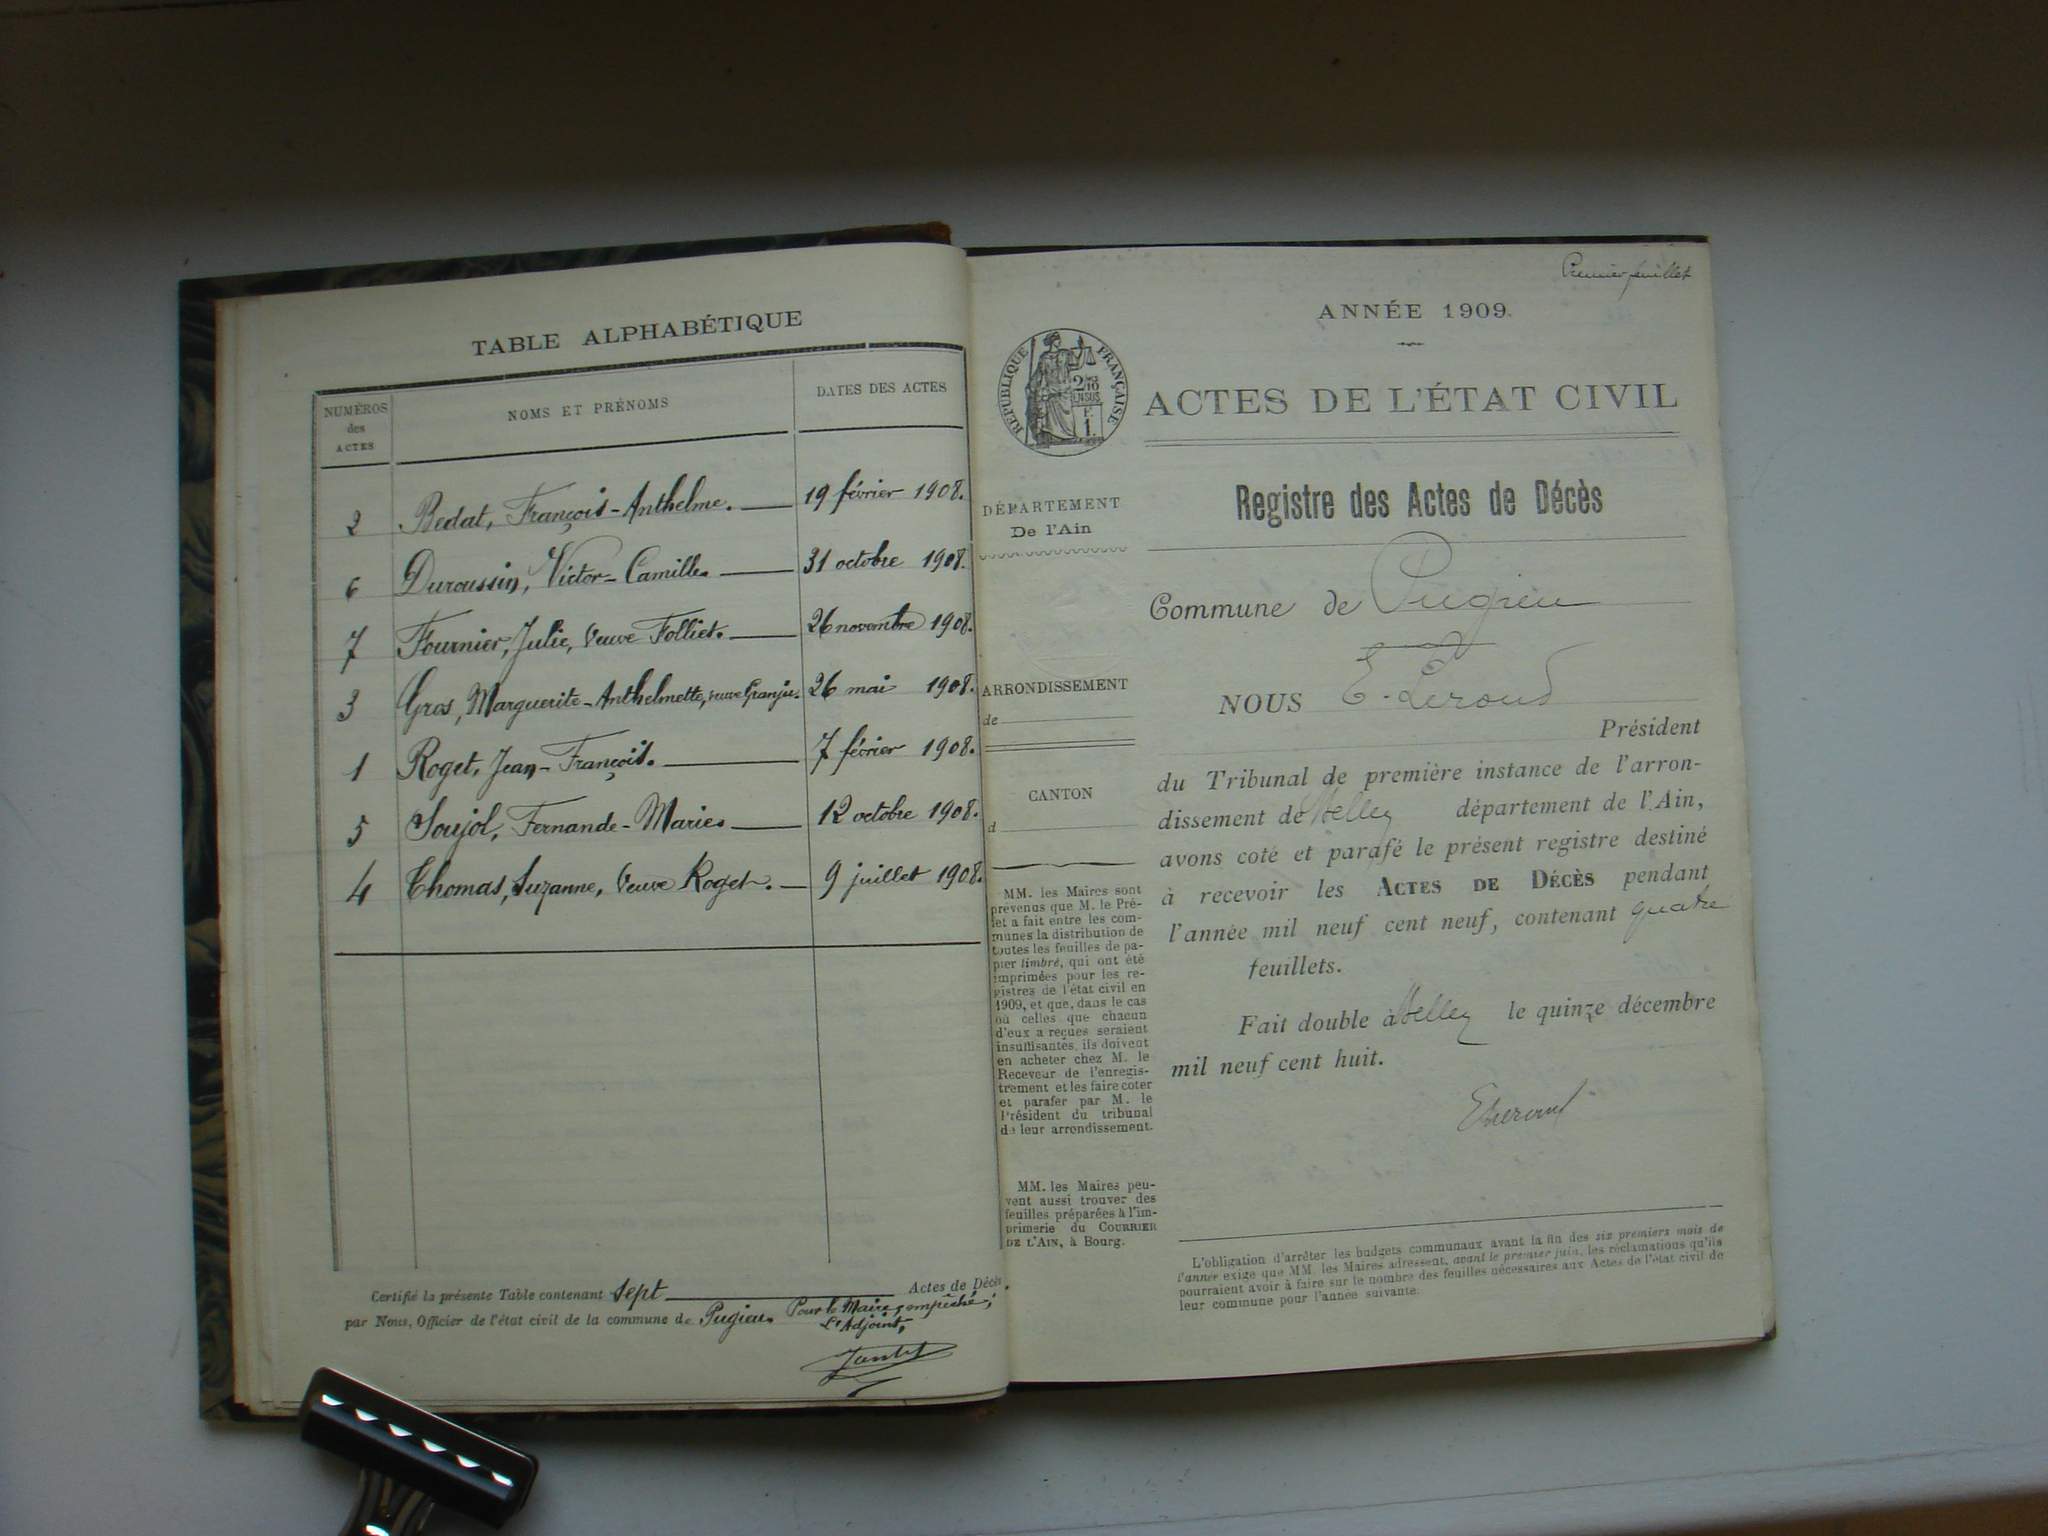 TABLE ALPHABÉTIQUE
NUMÉROS
des
ACTES
NOMS ET PRÉNOMS
DATES DES ACTES
2 Bedat, François-Anthelme. 19 février 1908.
6 Duroussin, Victor-Camille. 31 octobre 1908.
7 Fournier, Julie, Veuve Folliet. 26 novembre 1908.
3 Gros, Marguerite-Anthelmette, veuve Granju. 26 mai 1908.
1 Roget, Jean-François. 7 février 1908.
5 Soujol, Fernande-Marie. 12 octobre 1908.
4 Thomas, Suzanne, Veuve Roget. 9 juillet 1908.
Certifié la présente Table contenant Sept Actes de Décès.
par Nous, Officier de l'état civil de la commune de Pugieu. Pour le Maire empêché;
L'Adjoint,
Premier feuillet
ANNÉE 1909.
RÉPUBLIQUE FRANÇAISE
ACTES DE L'ÉTAT CIVIL
DÉPARTEMENT
De l'Ain
Registre des Actes de Décès
Commune de Pugieu
ARRONDISSEMENT
de
CANTON
d
NOUS E. Peroud
Président
du Tribunal de première instance de l'arron-
dissement de Belley département de l'Ain,
avons coté et parafé le présent registre destiné
à recevoir les ACTES DE DÉCÈS pendant
l'année mil neuf cent neuf, contenant quatre
feuillets.
Fait double à Belley le quinze décembre
mil neuf cent huit.
EPeroud
MM. les Maires sont
prévenus que M. le Pré-
fet a fait entre les com-
munes la distribution de
toutes les feuilles de pa-
pier timbré, qui ont été
imprimées pour les re-
gistres de l'état civil en
1909, et que, dans le cas
où celles que chacun
d'eux a reçues seraient
insuffisantes, ils doivent
en acheter chez M. le
Receveur de l'enregis-
trement et les faire coter
et parafer par M. le
Président du tribunal
de leur arrondissement.
MM. les Maires peu-
vent aussi trouver des
feuilles préparées à l'im-
primerie du COURRIER
DE L'AIN, à Bourg.
L'obligation d'arrêter les budgets communaux avant la fin des six premiers mois de
l'année exige que MM. les Maires adressent, avant le premier juin, les réclamations qu'ils
pourraient avoir à faire sur le nombre des feuilles nécessaires aux Actes de l'état civil de
leur commune pour l'année suivante.